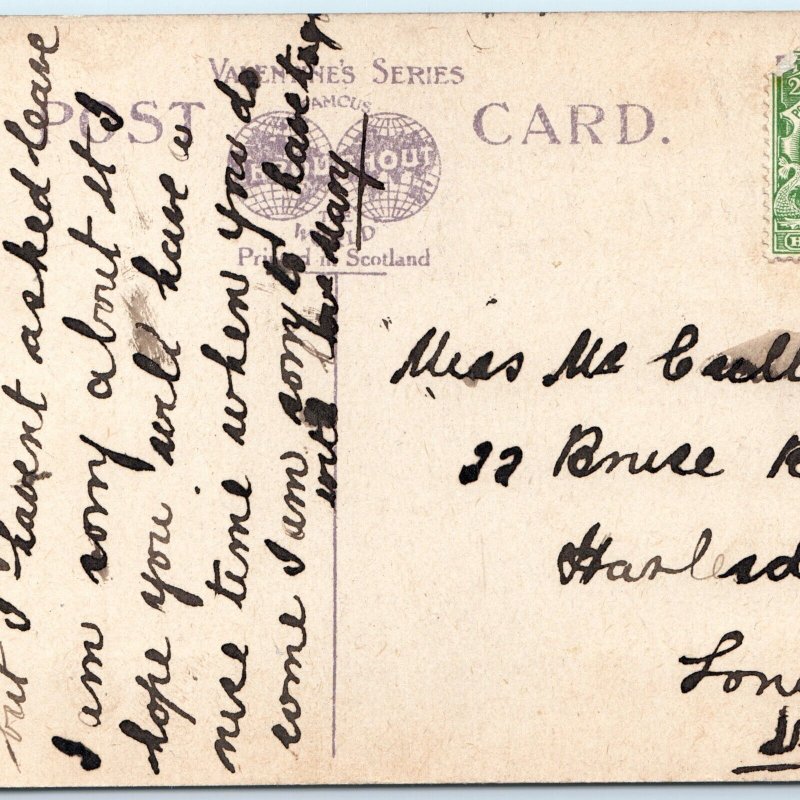 VALENTINE'S SERIES
POST CARD.
FAMOUS
THROUGHOUT
THE
WORLD
Printed in Scotland
but I havent asked leave
I am sorry about it I
hope you will have a
nise time when you do
come I am sorry to have to go
with love Mary
Miss Mc
22 Bruse R
Harlesd
Lon